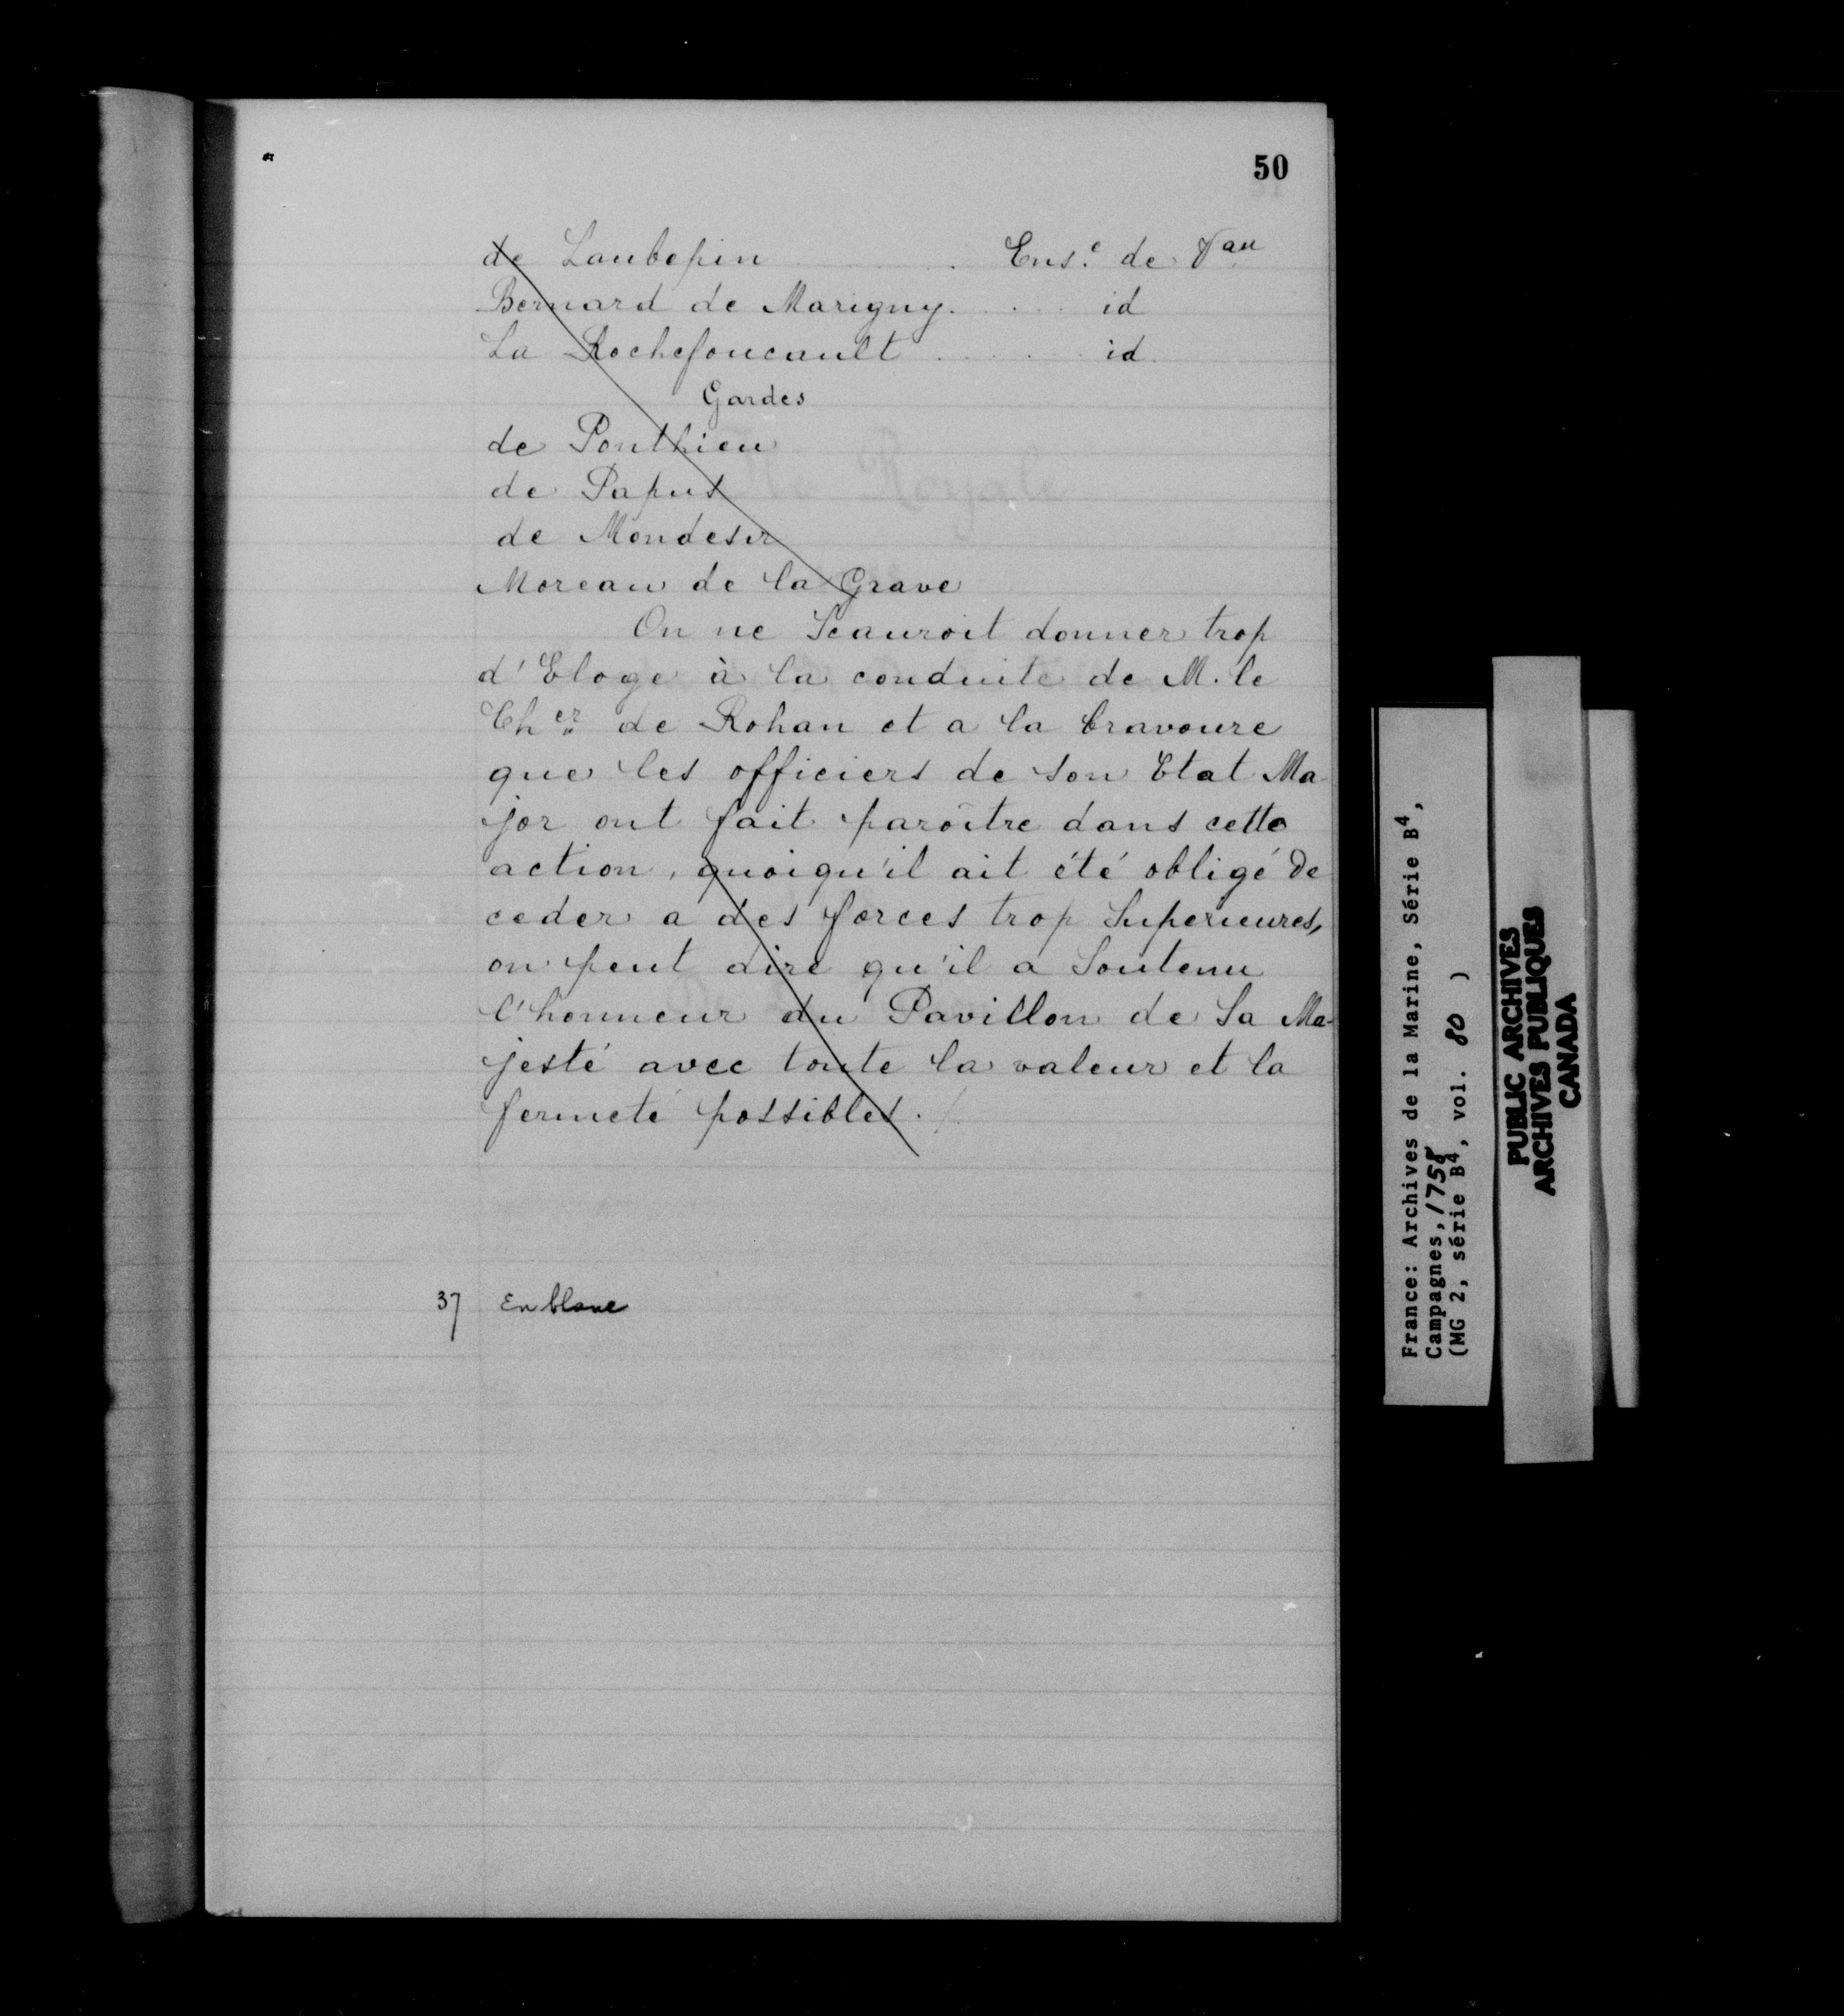 50
de Laubepin . . Ens.e de Vau
Bernard de Marigny. . . . id
La Rochefoucault . . . id.
Gardes
de Ponthieu
de Papus
de Mondesir
Moreau de la Grave
On ne Scauroit donner trop
d'Eloge à la conduite de M. le
Cher de Rohan et a la bravoure
que les officiers de son Etat Ma-
jor ont fait paroître dans cette
action, quoiqu'il ait été obligé de
ceder a des forces trop Superieures,
on peut dire qu'il a Soutenu
l'honneur du Pavillon de Sa Ma-
jesté avec toute la valeur et la
fermeté possibles./.
37 En blanc
France: Archives de la Marine, Série B4,
Campagnes, 1758
(MG 2, série B4, vol. 80 )
PUBLIC ARCHIVES
ARCHIVES PUBLIQUES
CANADA